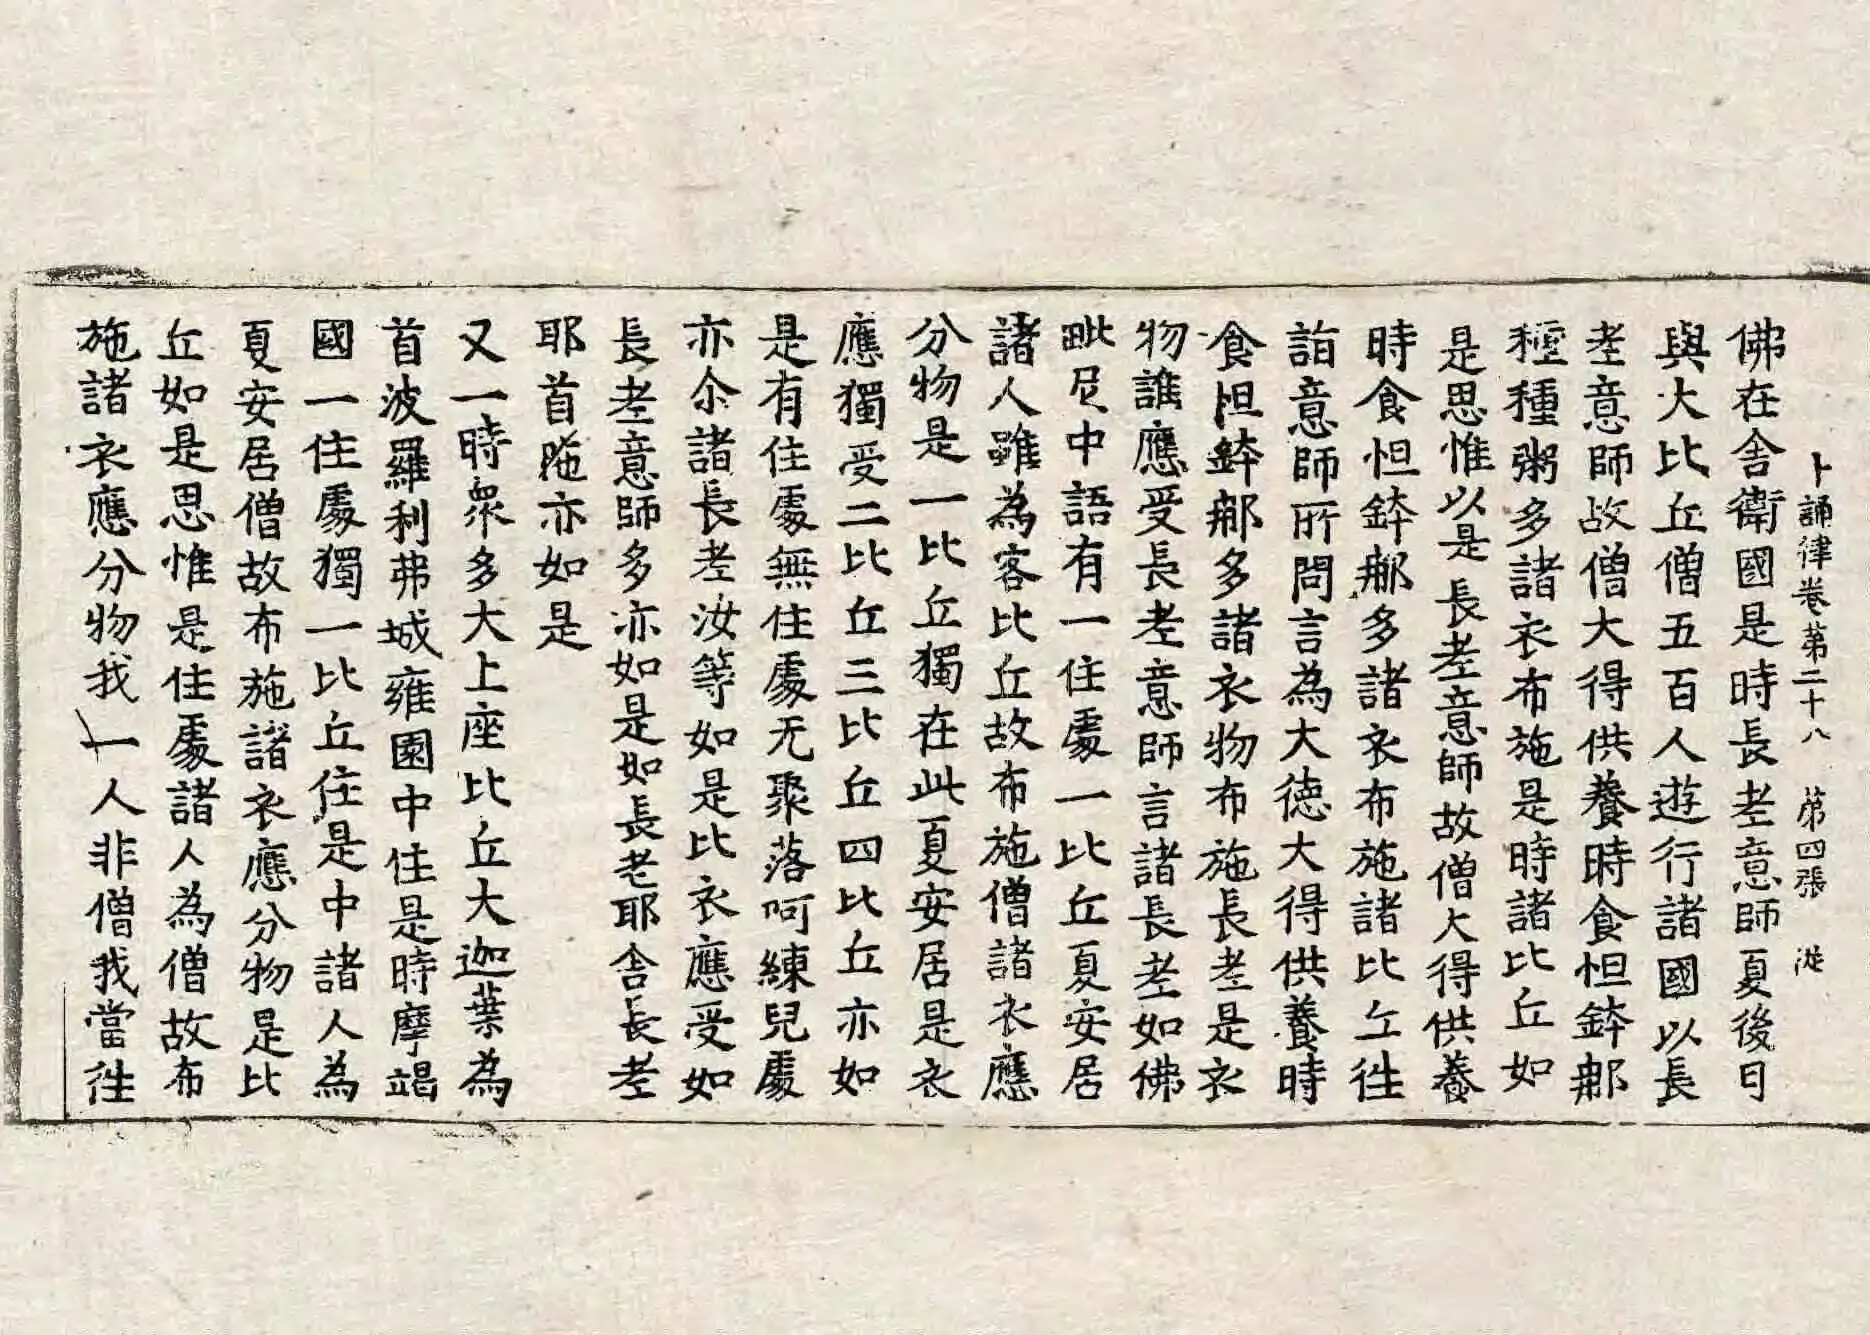 十誦律卷第二十八 第四張
佛在舍衛國是時長老意師夏後日
與大比丘僧五百人遊行諸國以長
老意師故僧大得供養時食怛鉢那
種種粥多諸衣布施是時諸比丘如
是思惟以是長老意師故僧大得供養
時食怛鉢那多諸衣布施諸比丘往
詣意師所問言為大德大得供養時
食怛鉢那多諸衣物布施長老是衣
物誰應受長老意師言諸長老如佛
毗尼中語有一住處一比丘夏安居
諸人雖為客比丘故布施僧諸衣應
分物是一比丘獨在此夏安居是衣
應獨受二比丘三比丘四比丘亦如
是有住處無住處无聚落阿練兒處
亦尒諸長老汝等如是比衣應受如
長老意師多亦如是如長老耶舍長老
耶首陁亦如是
又一時衆多大上座比丘大迦葉為
首波羅利弗城雍園中住是時摩竭
國一住處獨一比丘住是中諸人為
夏安居僧故布施諸衣應分物是比
丘如是思惟是住處諸人為僧故布
施諸衣應分物我一人非僧我當往